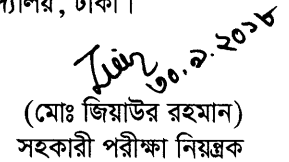 , ঢাকা।
৩০.৯.২০১৮
(মোঃ জিয়াউর রহমান)
সহকারী পরীক্ষা নিয়ন্ত্রক